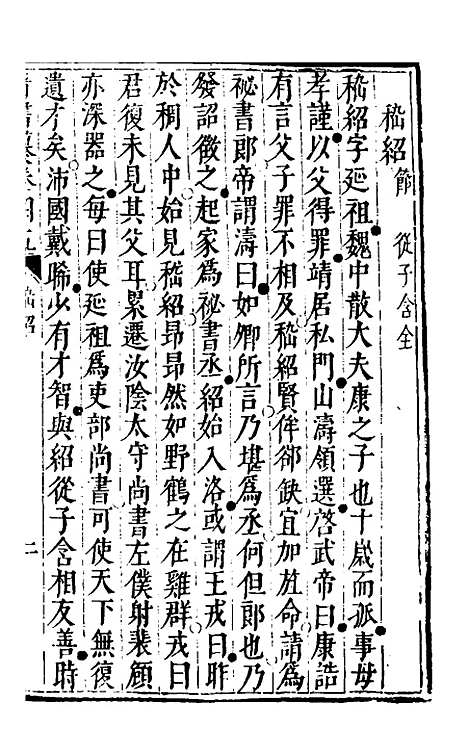 嵇紹節　從子含全
嵇紹字延祖魏中散大夫康之子也十歲而孤事母
孝謹以父得罪靖居私門山濤領選啓武帝曰康誥
有言父子罪不相及嵇紹賢侔郤缺宜加旌命請爲
祕書郎帝謂濤曰如卿所言乃堪爲丞何但郎也乃
發詔徵之起家爲祕書丞紹始入洛或謂王戎曰昨
於稠人中始見嵇紹昂昂然如野鶴之在雞群戎曰
君復未見其父耳累遷汝陰太守尚書左僕射裴頠
亦深器之每曰使延祖爲吏部尚書可使天下無復
遺才矣沛國戴晞少有才智與紹從子含相友善時
嵇紹
二